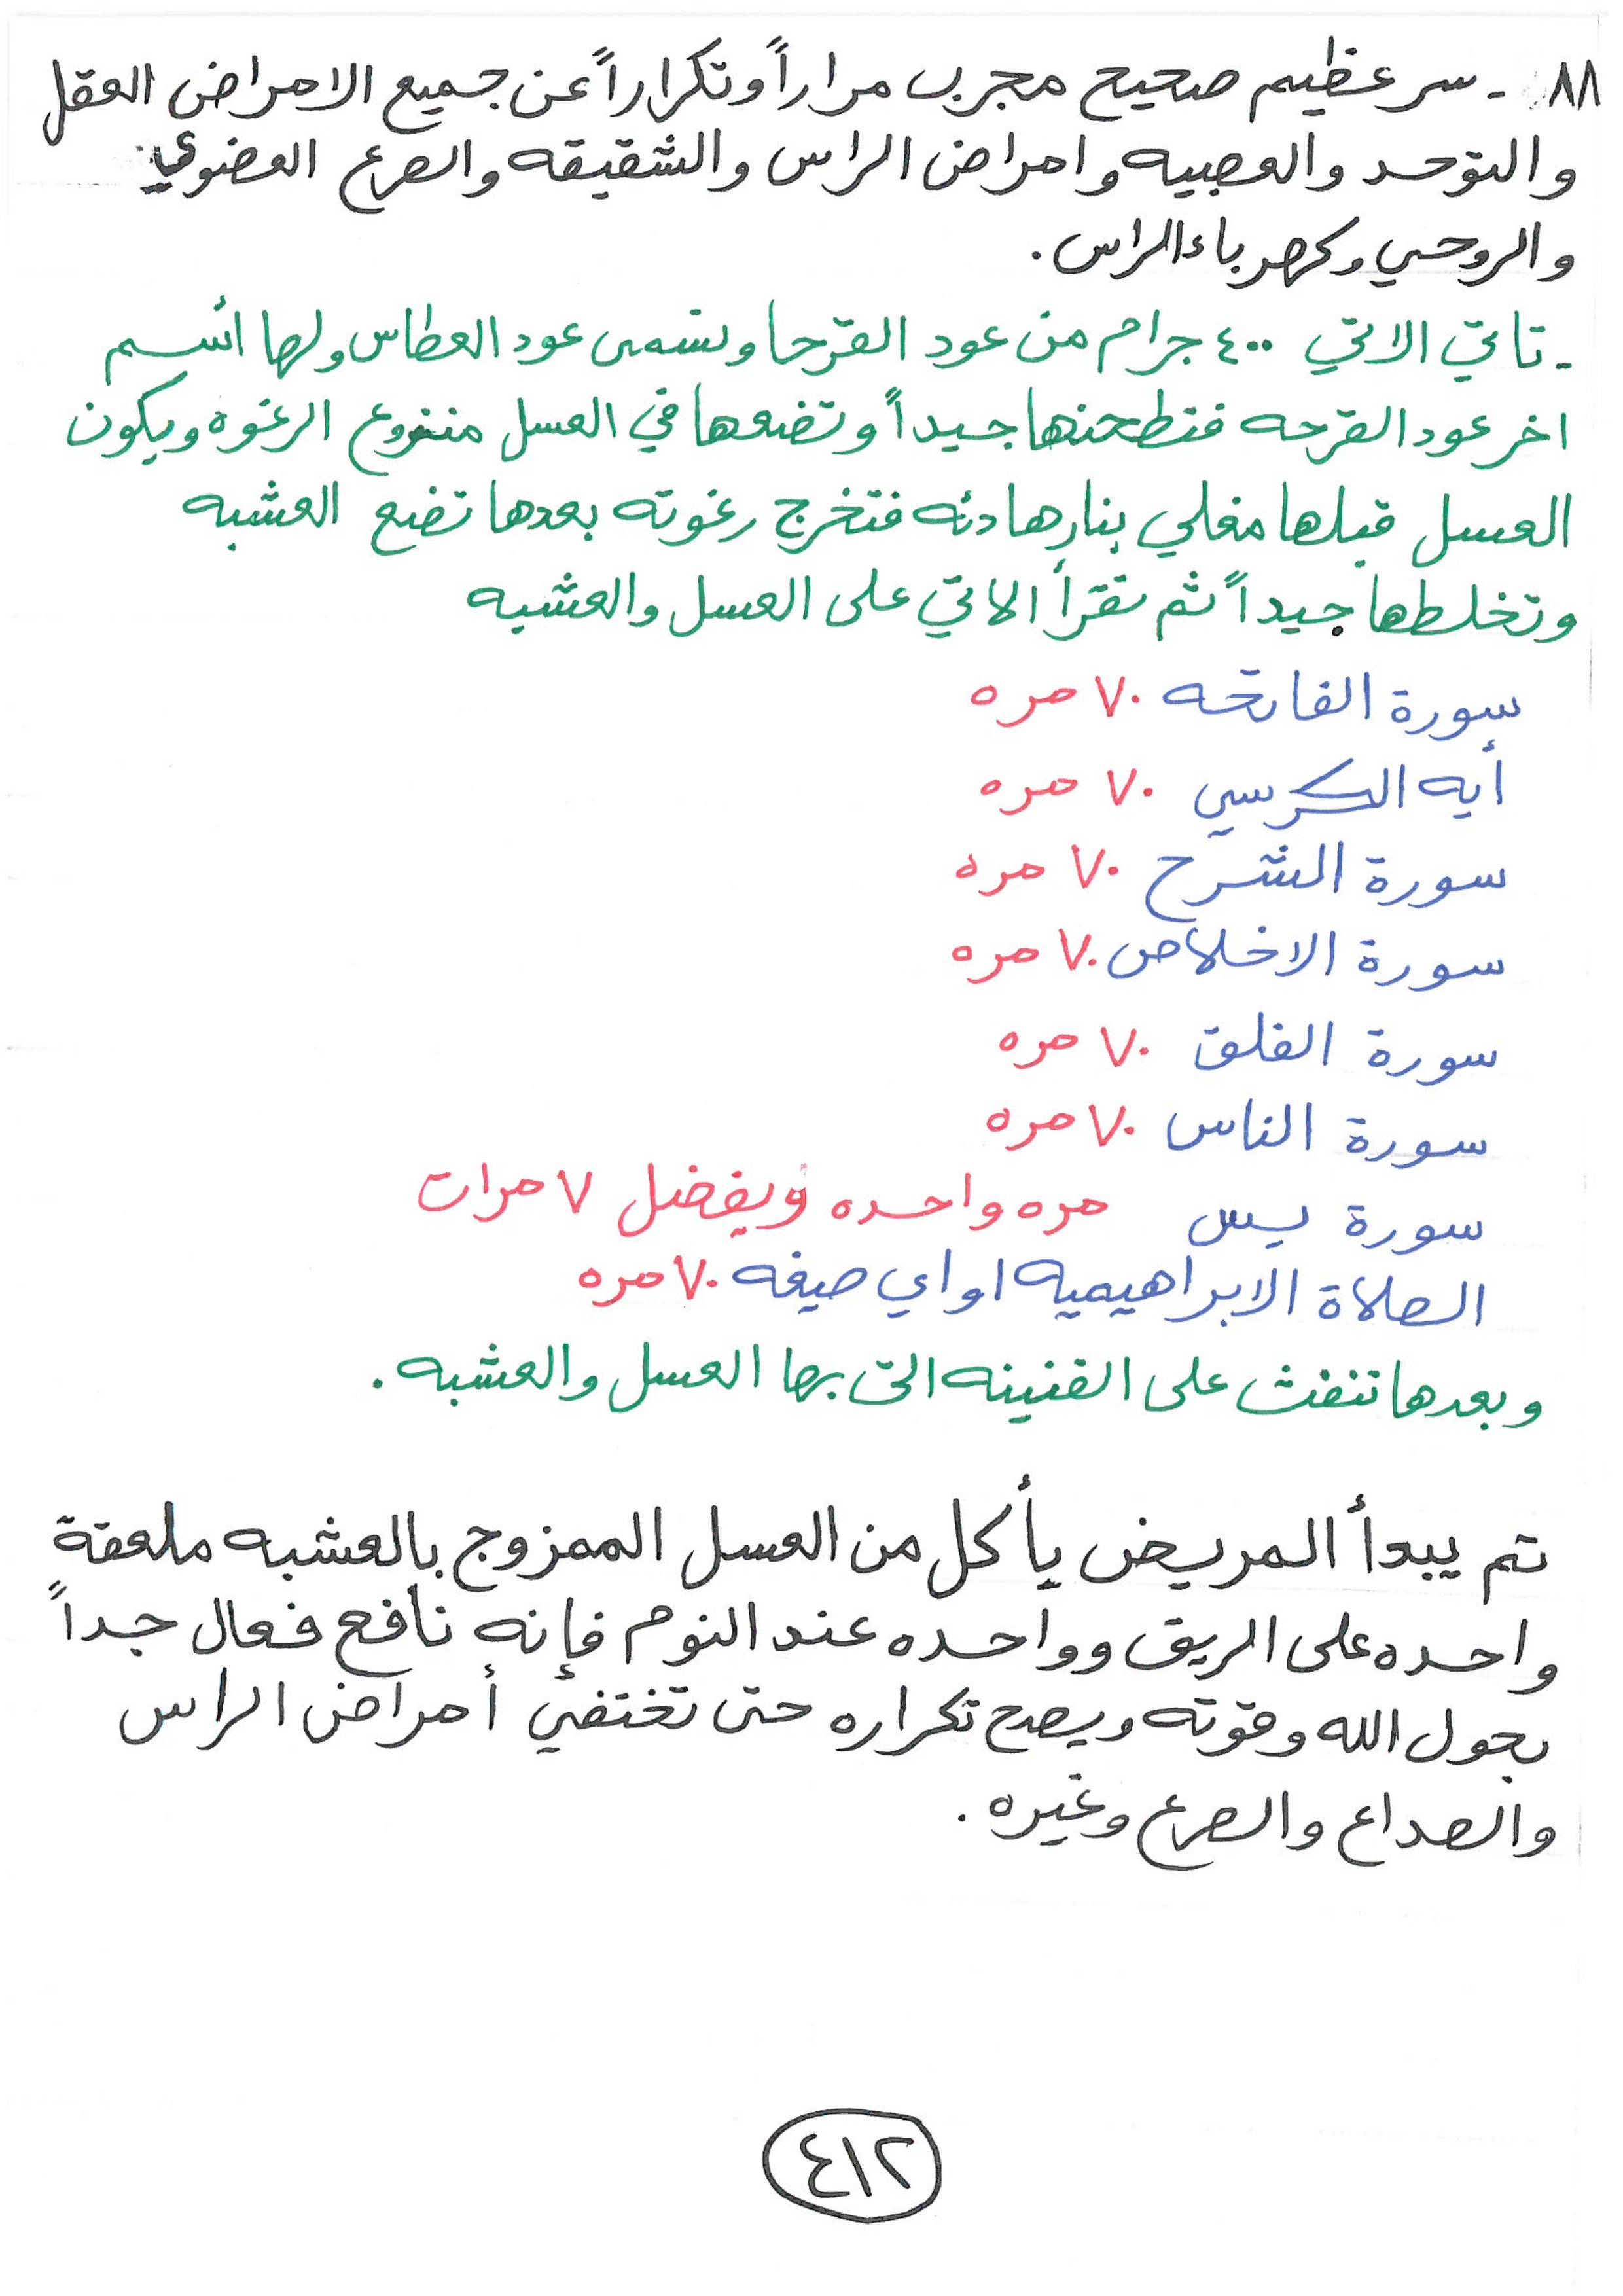 ٨٨ - سر عظيم صحيح مجرب مراراً وتكراراً عن جميع الامراض العقل
والتوحد والعصبيه وامراض الراس والشقيقه والصرع العضوي
والروحي وكهرباء الراس.
- تاتي الاتي ٤٠٠ جرام من عود القرحا وتسمى عود العطاس ولها اسم
اخر عود القرحه فتطحنها جيداً وتضعها في العسل منزوع الرغوه ويكون
العسل قبلها مغلي بنار هادئه فتخرج رغوته بعدها تضع العشبه
وتخلطها جيداً ثم تقرأ الاتي على العسل والعشبه
سورة الفاتحه ٧٠ مره
أيه الكرسي ٧٠ مره
سورة الشرح ٧٠ مره
سورة الاخلاص ٧٠ مره
سورة الفلق ٧٠ مره
سورة الناس ٧٠ مره
سورة يس مره واحده ويفضل ٧ مرات
الصلاة الابراهيميه او اي صيغه ٧٠ مره
وبعدها تنفث على القنينه التى بها العسل والعشبه.
تم يبدأ المريض يأكل من العسل الممزوج بالعشبه ملعقة
واحده على الريق وواحده عند النوم فإنه نافع فعال جداً
بحول الله وقوته ويصح تكراره حتى تختفي أمراض الراس
والصداع والصرع وغيره.
٤١٢